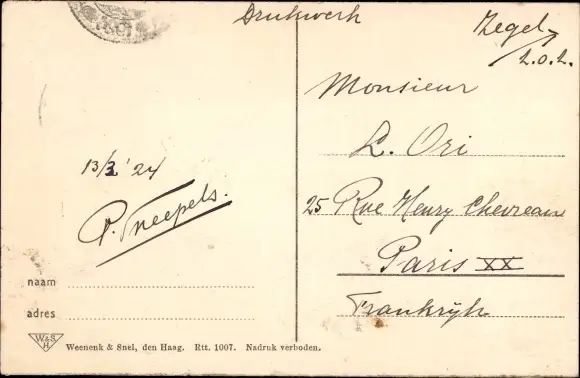 Drukwerk
Zegel
t.o.z.
Monsieur
L. Ori
25 Rue Henry Chevreau
Paris XX
Frankrijk
13/3 '24
P. Sneepels.
naam
adres
W&S
H
Weenenk & Snel, den Haag. Rtt. 1007. Nadruk verboden.